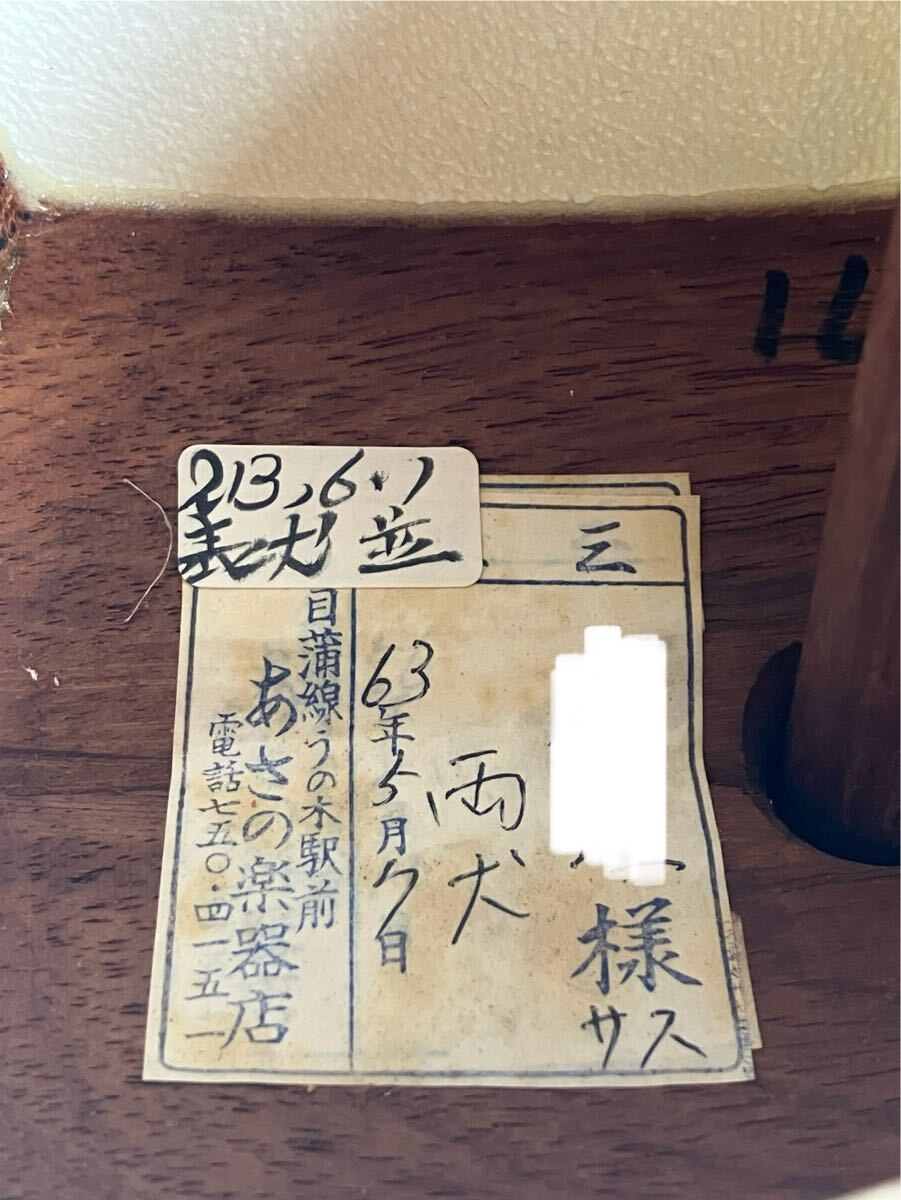 213,6.1
表犬 並
三
様
サス
両犬
63年5月7日
目蒲線うの木駅前
あさの楽器店
電話七五〇.四一五一